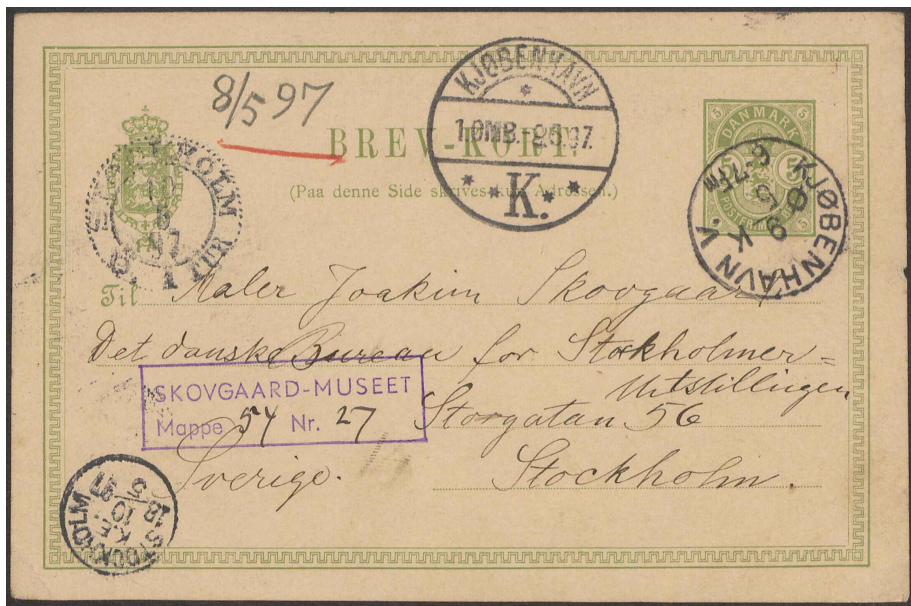 8/5 97
KJØBENHAVN
1.OMB.-9.5.97.
K.
BREV-KORT.
(Paa denne Side skrives kun Adressen.)
5 DANMARK 5
5 5
POSTFRIM
5
KJØBENHAVN V.
9 5
6-7 EM
K
HOLM
97
1 TUR
Til Maler Joakim Skovgaard
Det danske Bureau for Stockholmer=
Utstillingen
SKOVGAARD-MUSEET
Mappe 54 Nr. 27
Storgatan 56
Sverige. Stockholm.
STOCKHOLM
K.E.
10
5
97